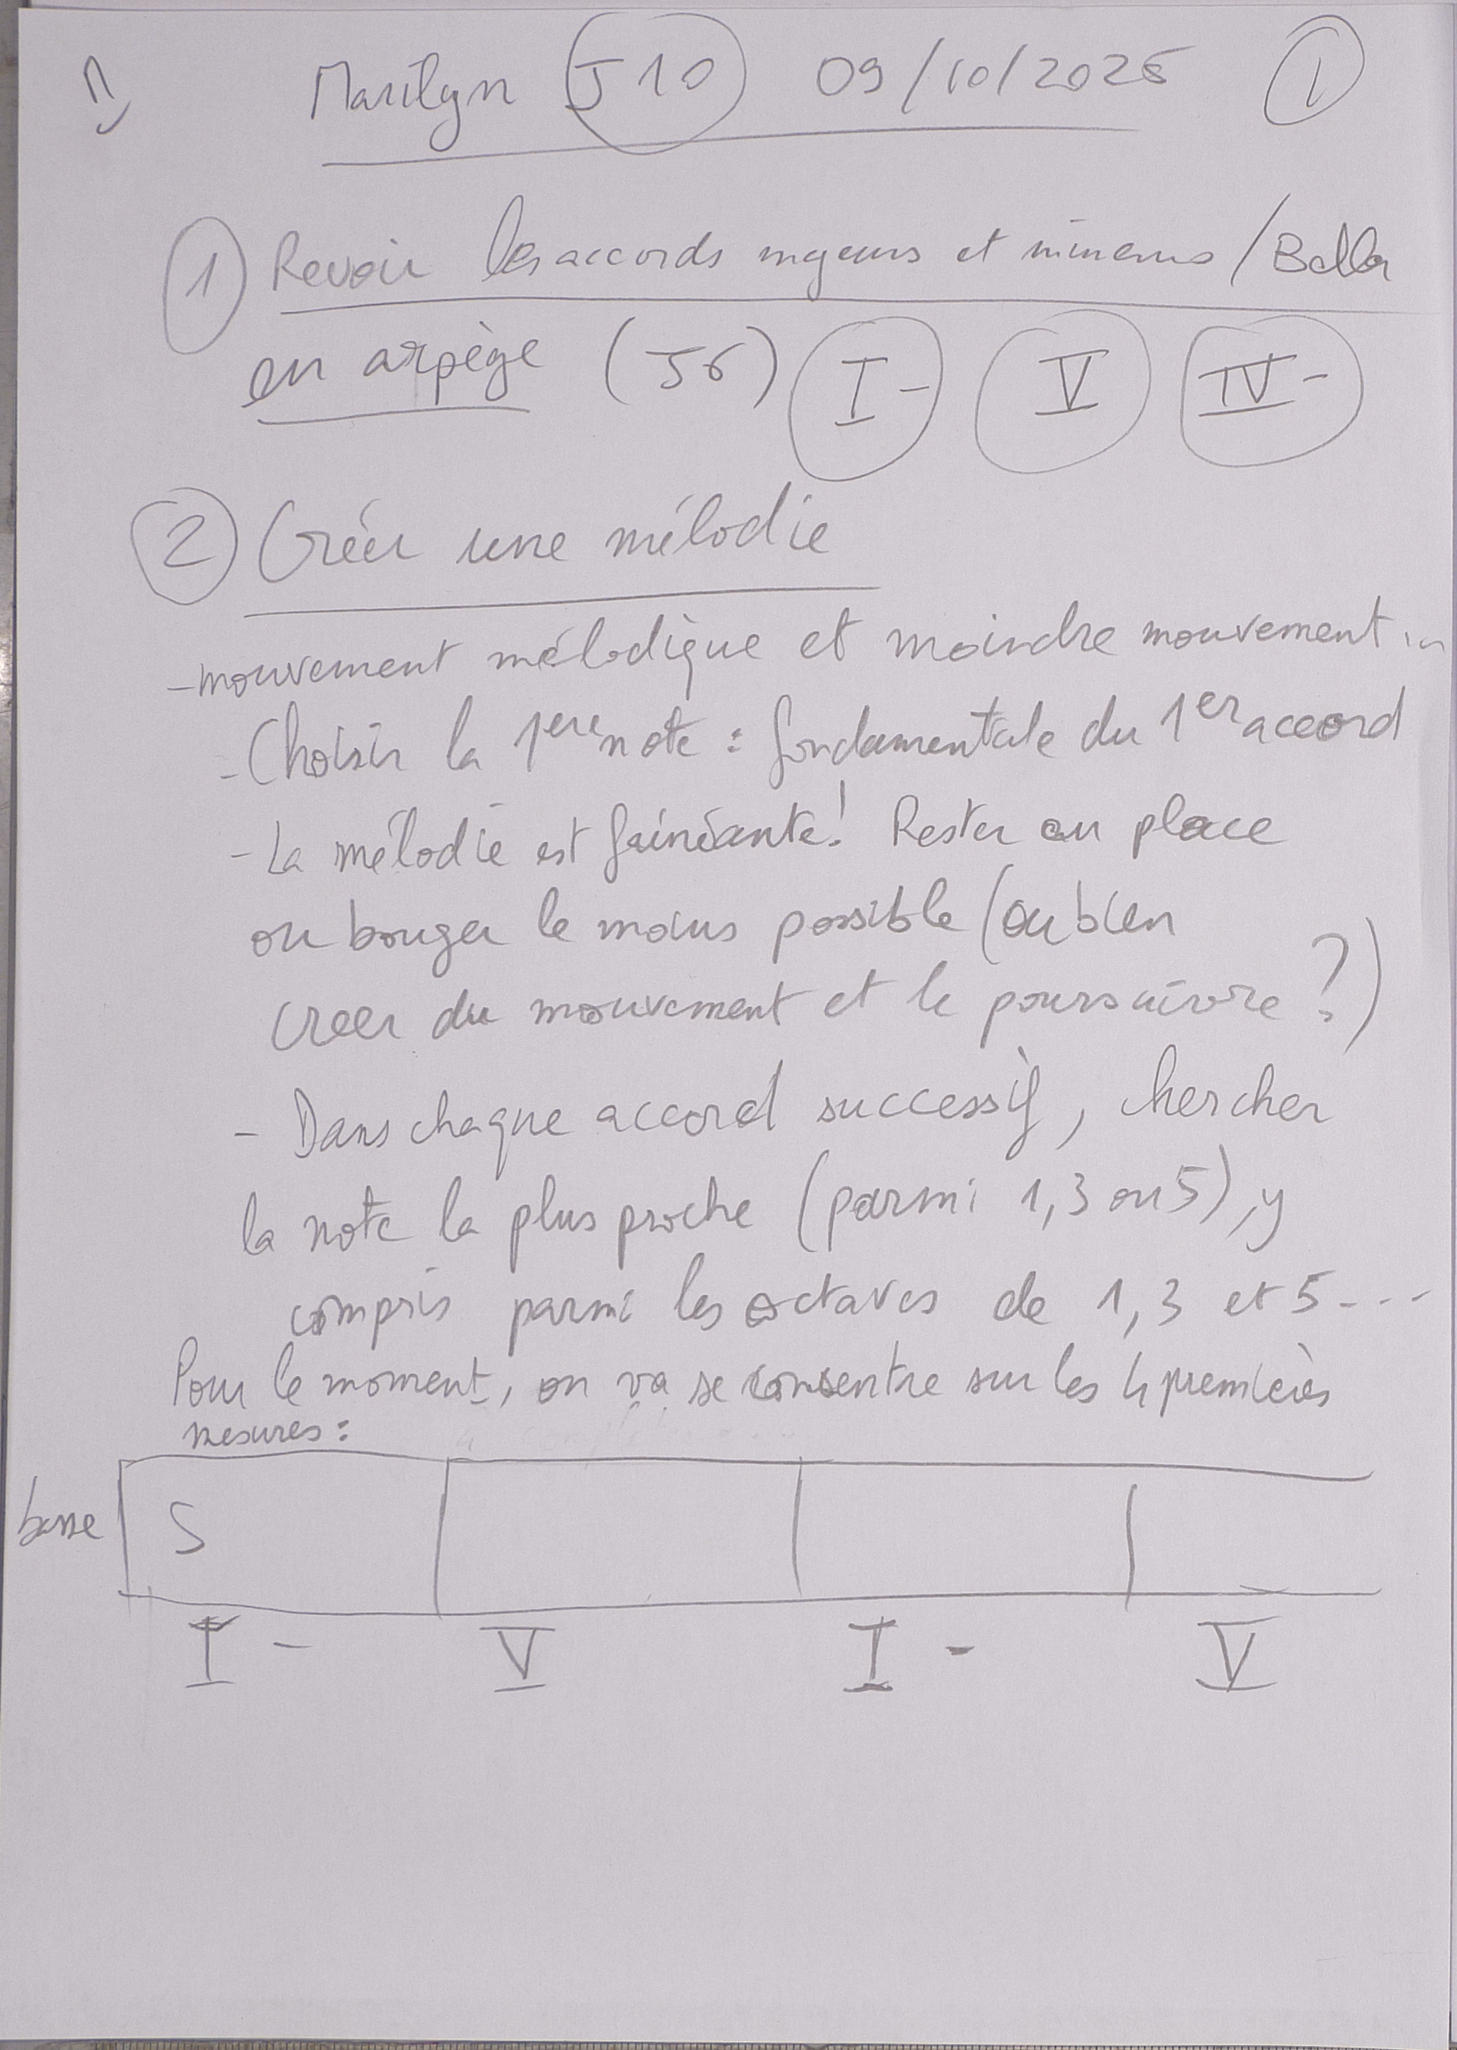 Marilyn J10 09/10/2025 1
1 Revoir les accords majeurs et mineurs / Bella
en arpège (J6) I- V IV-
2 Créer une mélodie
- mouvement mélodique et moindre mouvement...
- Choisir la 1ere note : fondamentale du 1er accord
- La mélodie est fainéante! Rester en place
ou bouger le moins possible (ou bien
creer du mouvement et le poursuivre ?)
- Dans chaque accord successif, chercher
la note la plus proche (parmi 1, 3 ou 5), y
compris parmi les octaves de 1, 3 et 5 ---
Pour le moment, on va se consentre sur les 4 premières
mesures :
basse S
I - V I - V